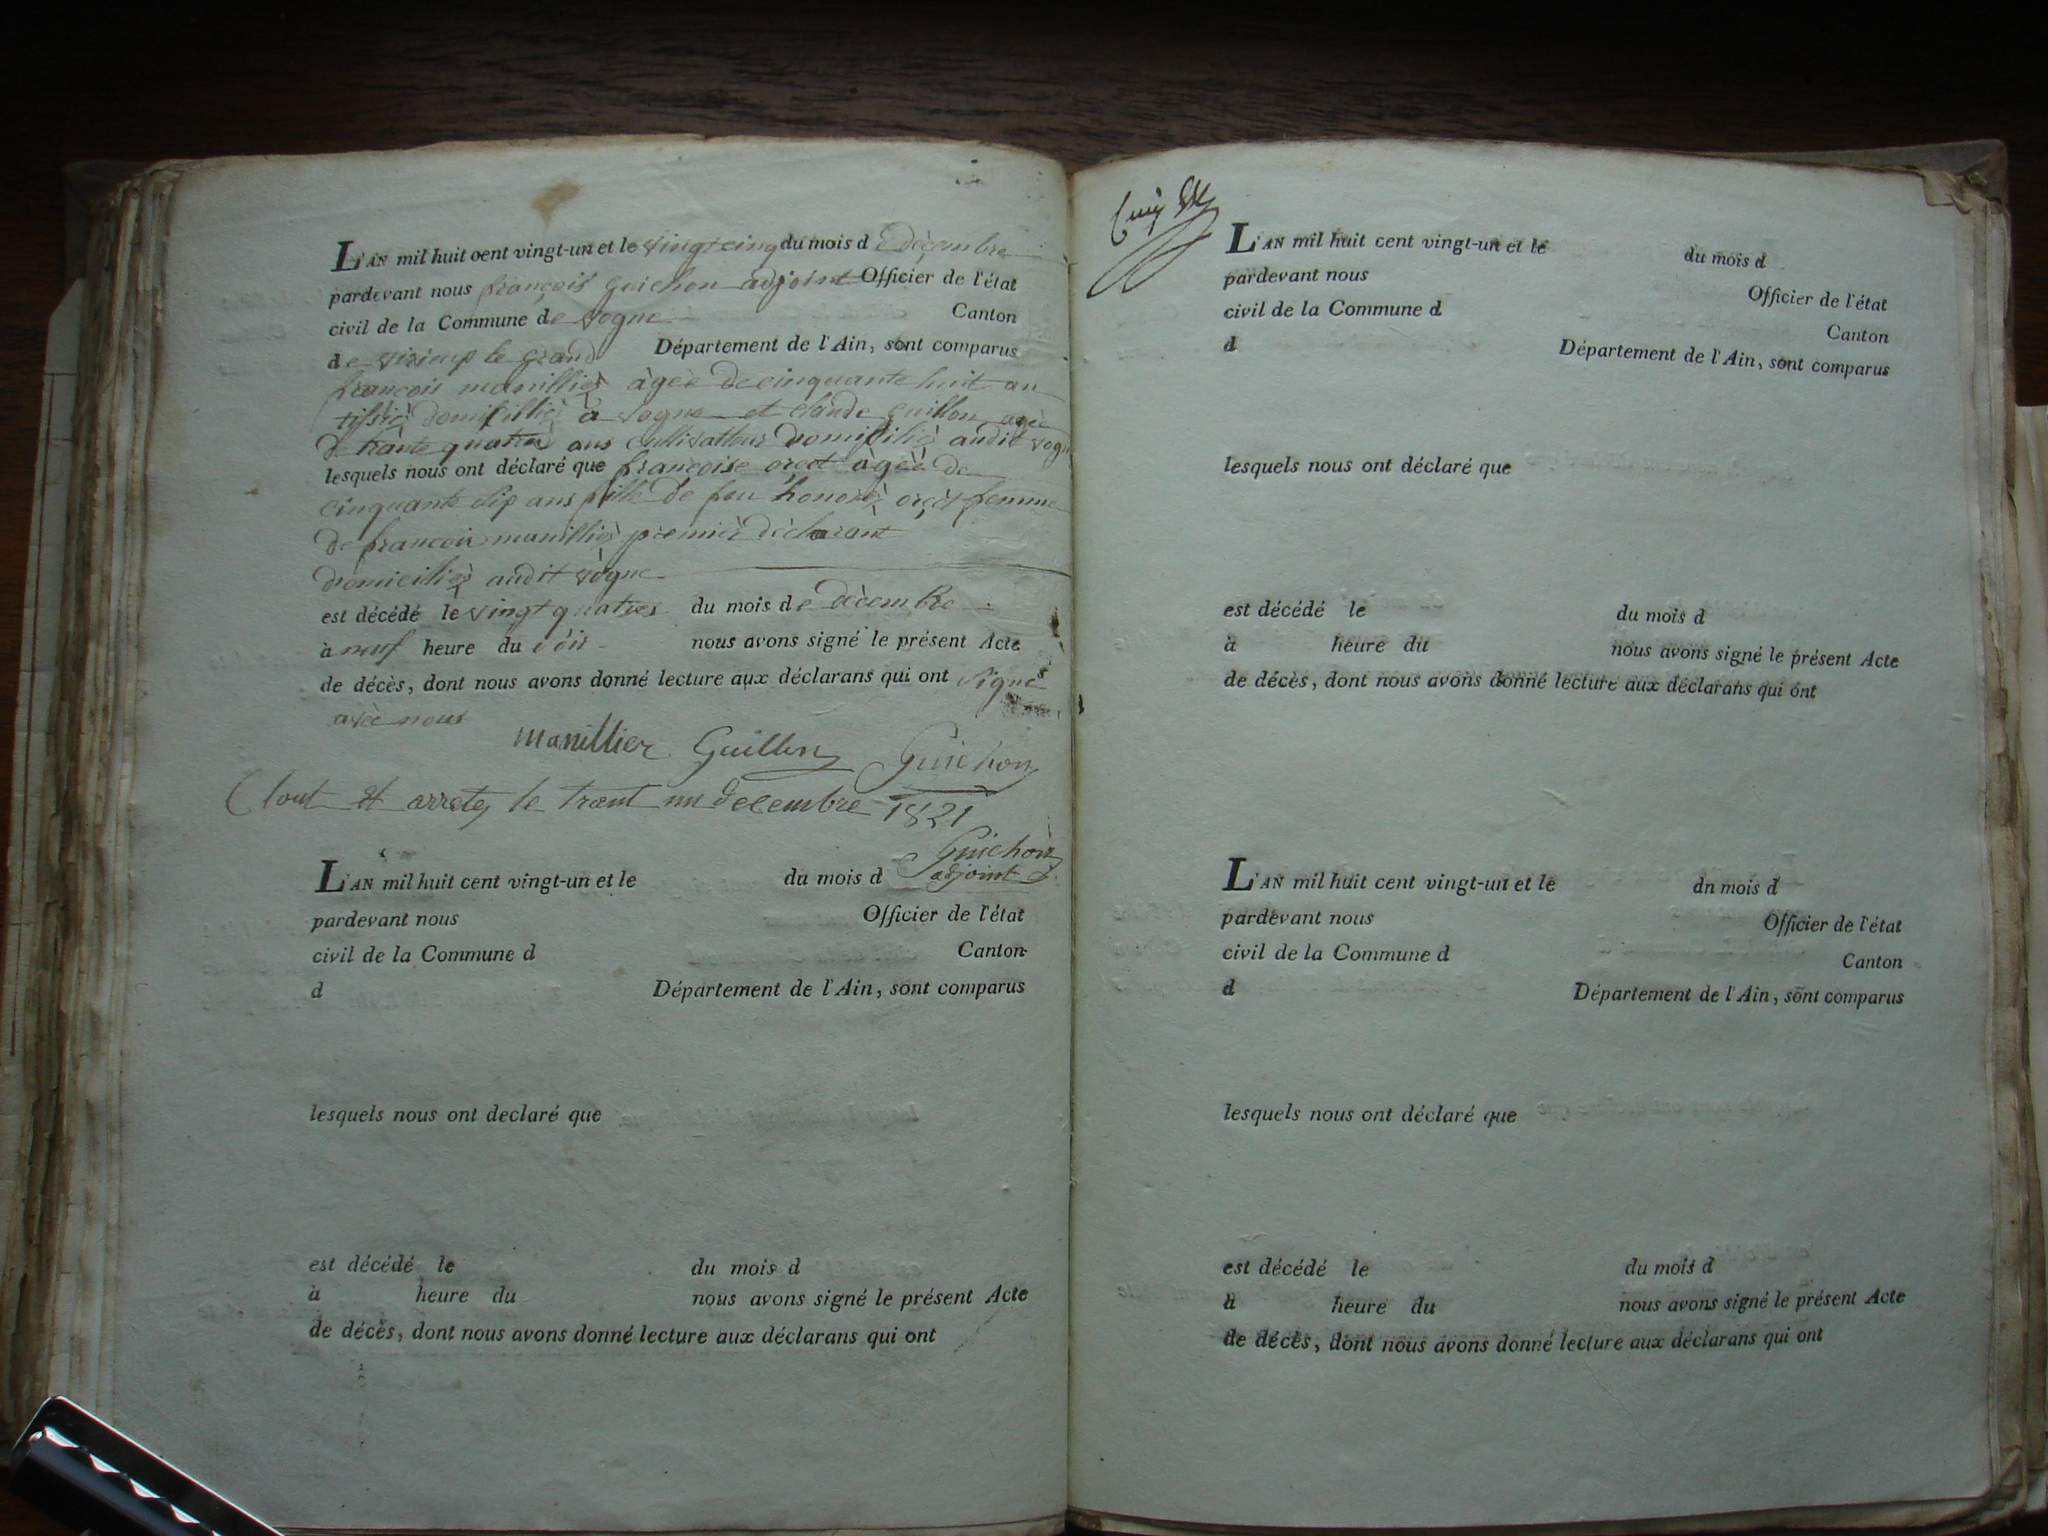 L'AN mil huit cent vingt-un et le vingt cinq du mois de dècembre
pardevant nous françois guichon adjoint Officier de l'état
civil de la Commune de vogne Canton
de virieux le grand Département de l'Ain, sont comparus
françois manillièr àgèe de cinquante huit an
tissié domicilliè à vogne et claude guillon agèe
de trante quatre ans cultivatteur domicilié audit vogne
lesquels nous ont déclaré que françoise àgèe de
cinquante sip ans fille de feu honoré femme
de françoir manilliè premièr dèclarant
domiciliè audit vogne
est décédé le vingt quatres du mois de dècembre
à neuf heure du soir nous avons signé le présent Acte
de décès, dont nous avons donné lecture aux déclarans qui ont signes
avèc nous
manillier Guillon Guichon
Clout et arretez le trant un decembre 1821
Guichon
adjoint
L'AN mil huit cent vingt-un et le du mois d
pardevant nous Officier de l'état
civil de la Commune d Canton
d Département de l'Ain, sont comparus
lesquels nous ont declaré que
est décédé le du mois d
à heure du nous avons signé le présent Acte
de décès, dont nous avons donné lecture aux déclarans qui ont
L'AN mil huit cent vingt-un et le du mois d
pardevant nous Officier de l'état
civil de la Commune d Canton
d Département de l'Ain, sont comparus
lesquels nous ont déclaré que
est décédé le du mois d
à heure du nous avons signé le présent Acte
de décès, dont nous avons donné lecture aux déclarans qui ont
L'AN mil huit cent vingt-un et le dn mois d
pardevant nous Officier de l'état
civil de la Commune d Canton
d Département de l'Ain, sont comparus
lesquels nous ont déclaré que
est décédé le du mois d
à heure du nous avons signé le présent Acte
de décès, dont nous avons donné lecture aux déclarans qui ont